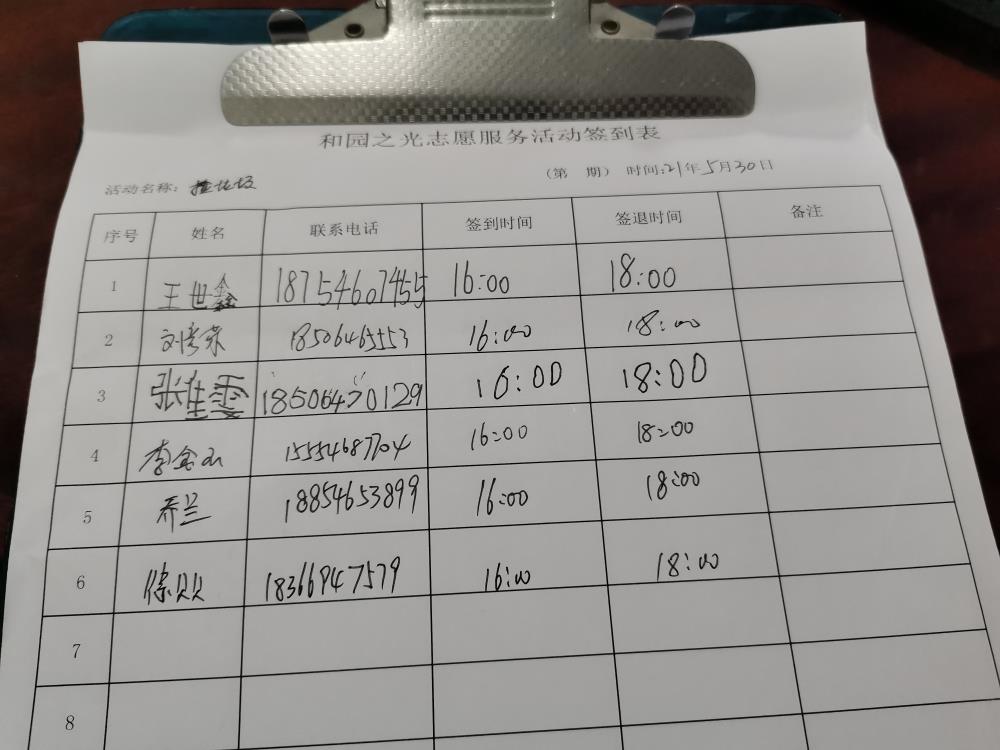 和园之光志愿服务活动签到表
活动名称: (第 期) 时间:21年5月30日
序号 姓名 联系电话 签到时间 签退时间 备注
1 王世鑫 18754607455 16:00 18:00
2 18506465553 16:00 18:00
3 张佳雯 18506470129 16:00 18:00
4 李金 15554687704 16:00 18:00
5 乔兰 18854653899 16:00 18:00
6 徐贝贝 18366947579 16:00 18:00
7
8